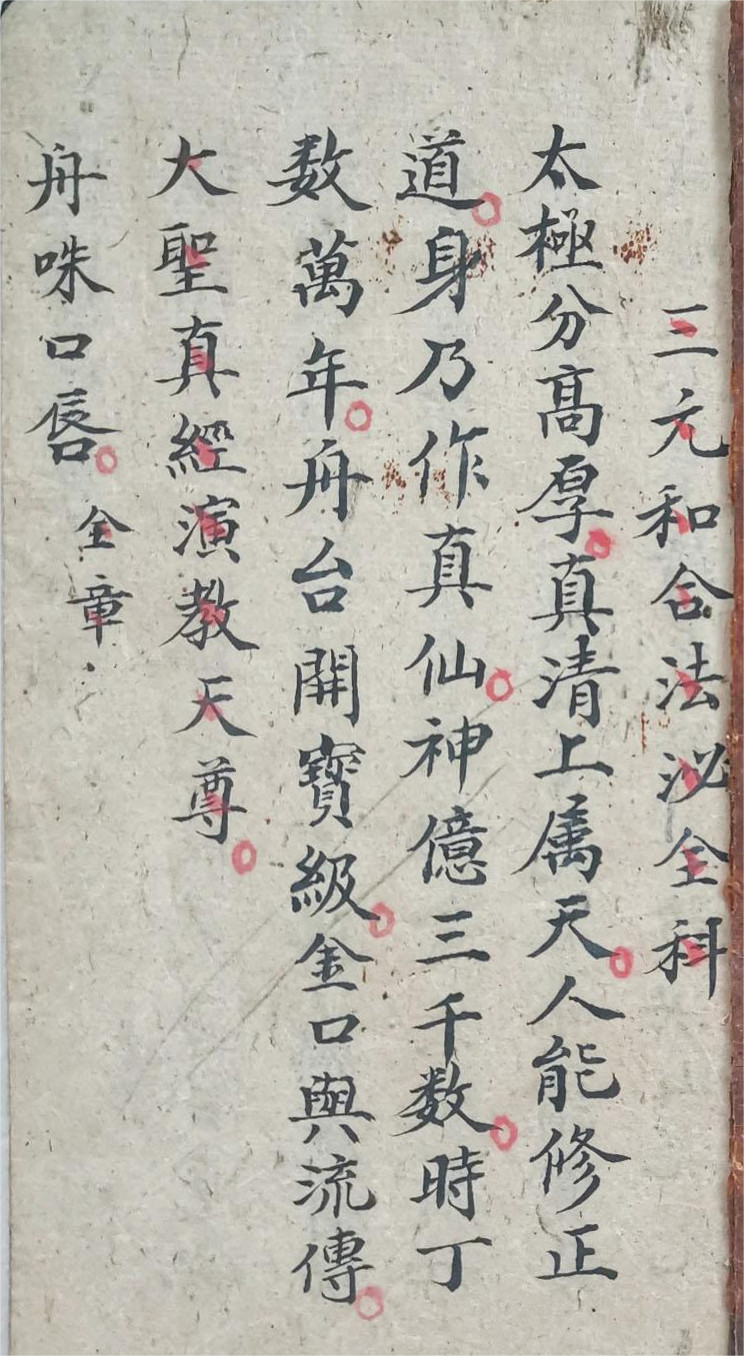 三元和合法泌全科
太極分高厚。真清上属天。人能修正
道。身乃作真仙。神億三千数。時丁
数萬年。舟台開寶級。金口與流傳。
大聖真經演教天尊。
舟咮口唇。全章